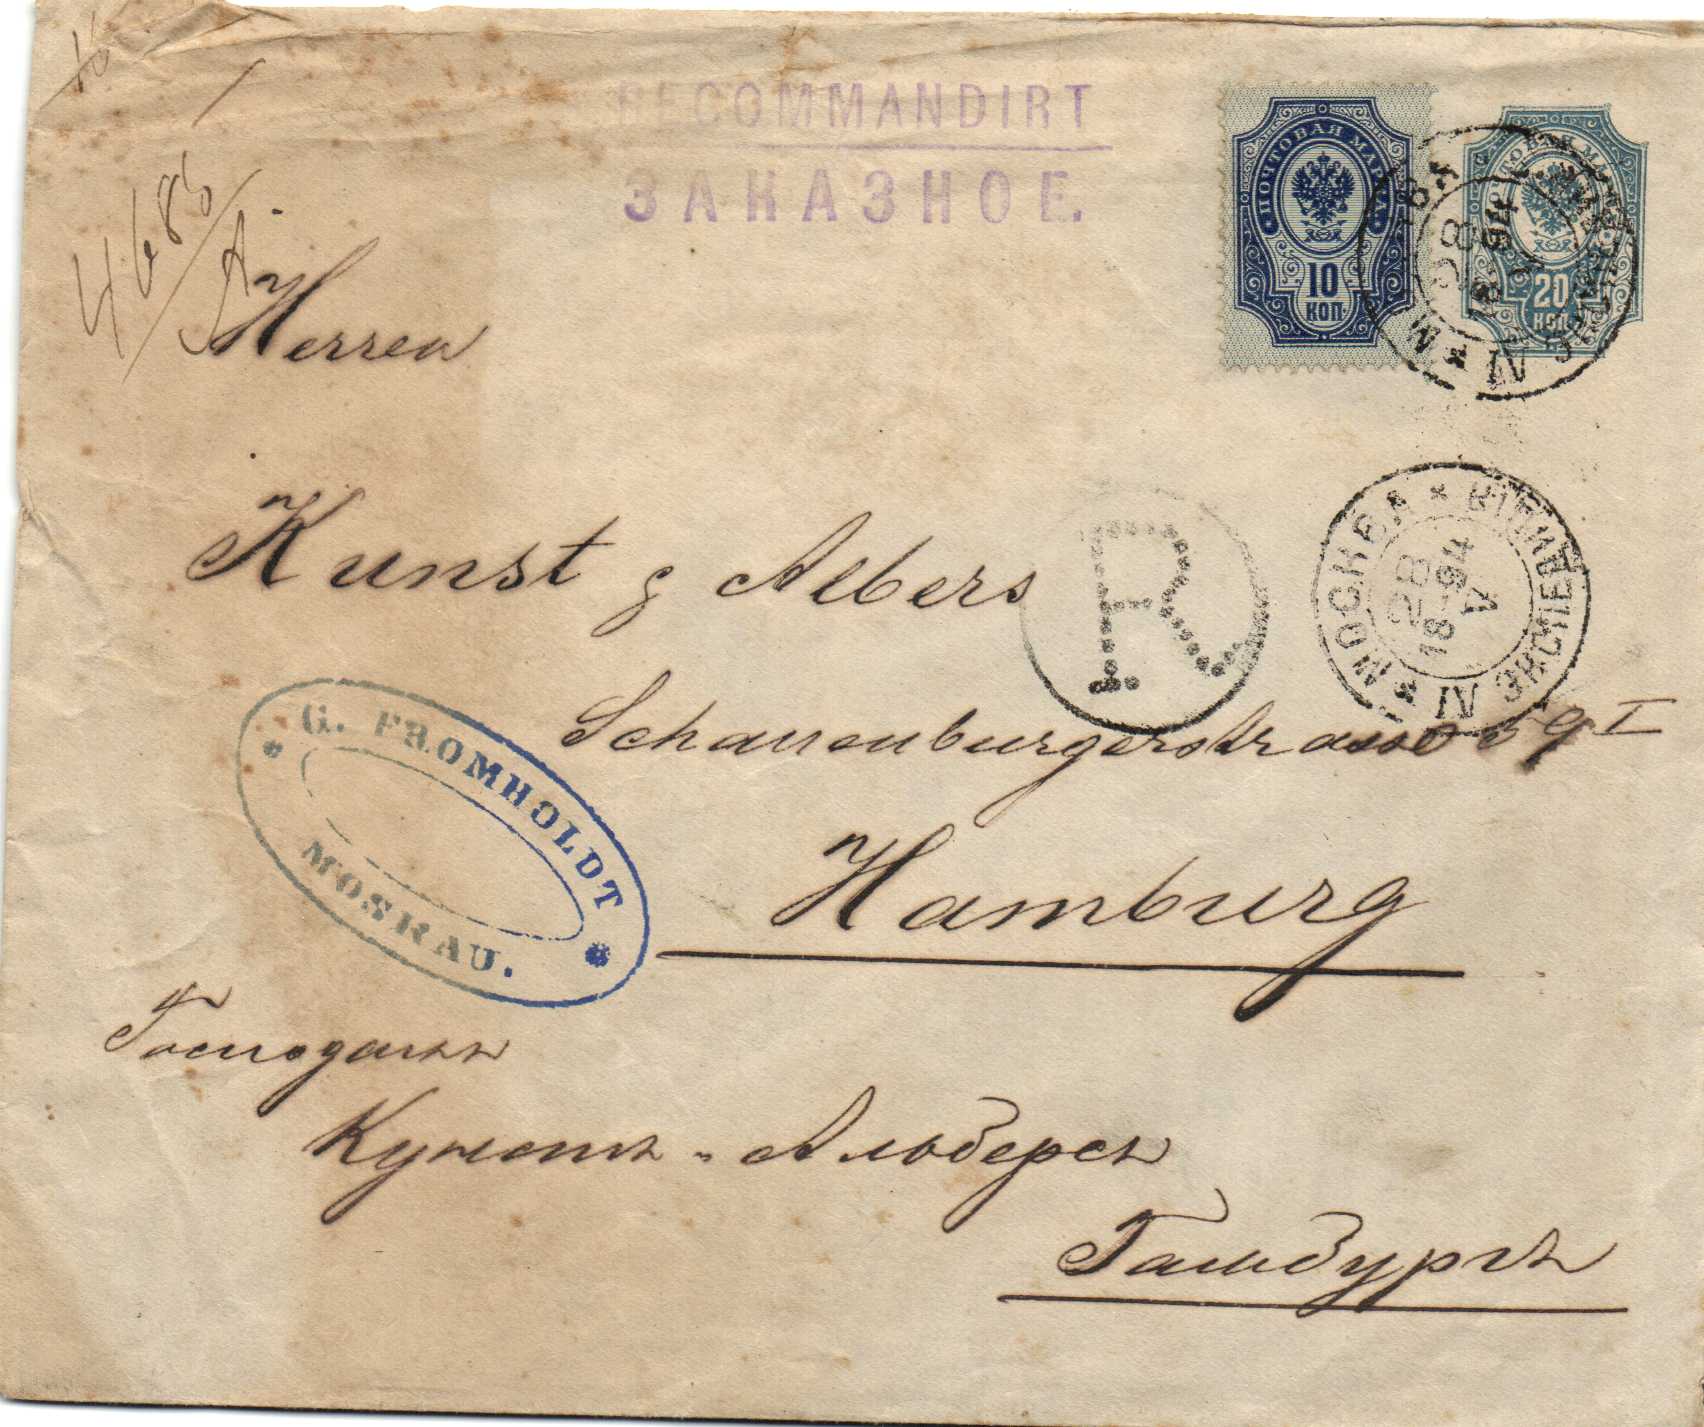 RECOMMANDIRT
ЗАКАЗНОЕ.
ПОЧТОВАЯ МАРКА
10
КОП.
20
КОП.
4685
Herren
Kunst & Albers
Schauenburgerstrasse 59 I
Hamburg
R
МОСКВА
ЭКСПЕДИЦІЯ
28
V
1894
G. FROMHOLDT
MOSKAU.
Господамъ
Кунстъ и Альберсъ
Гамбургъ